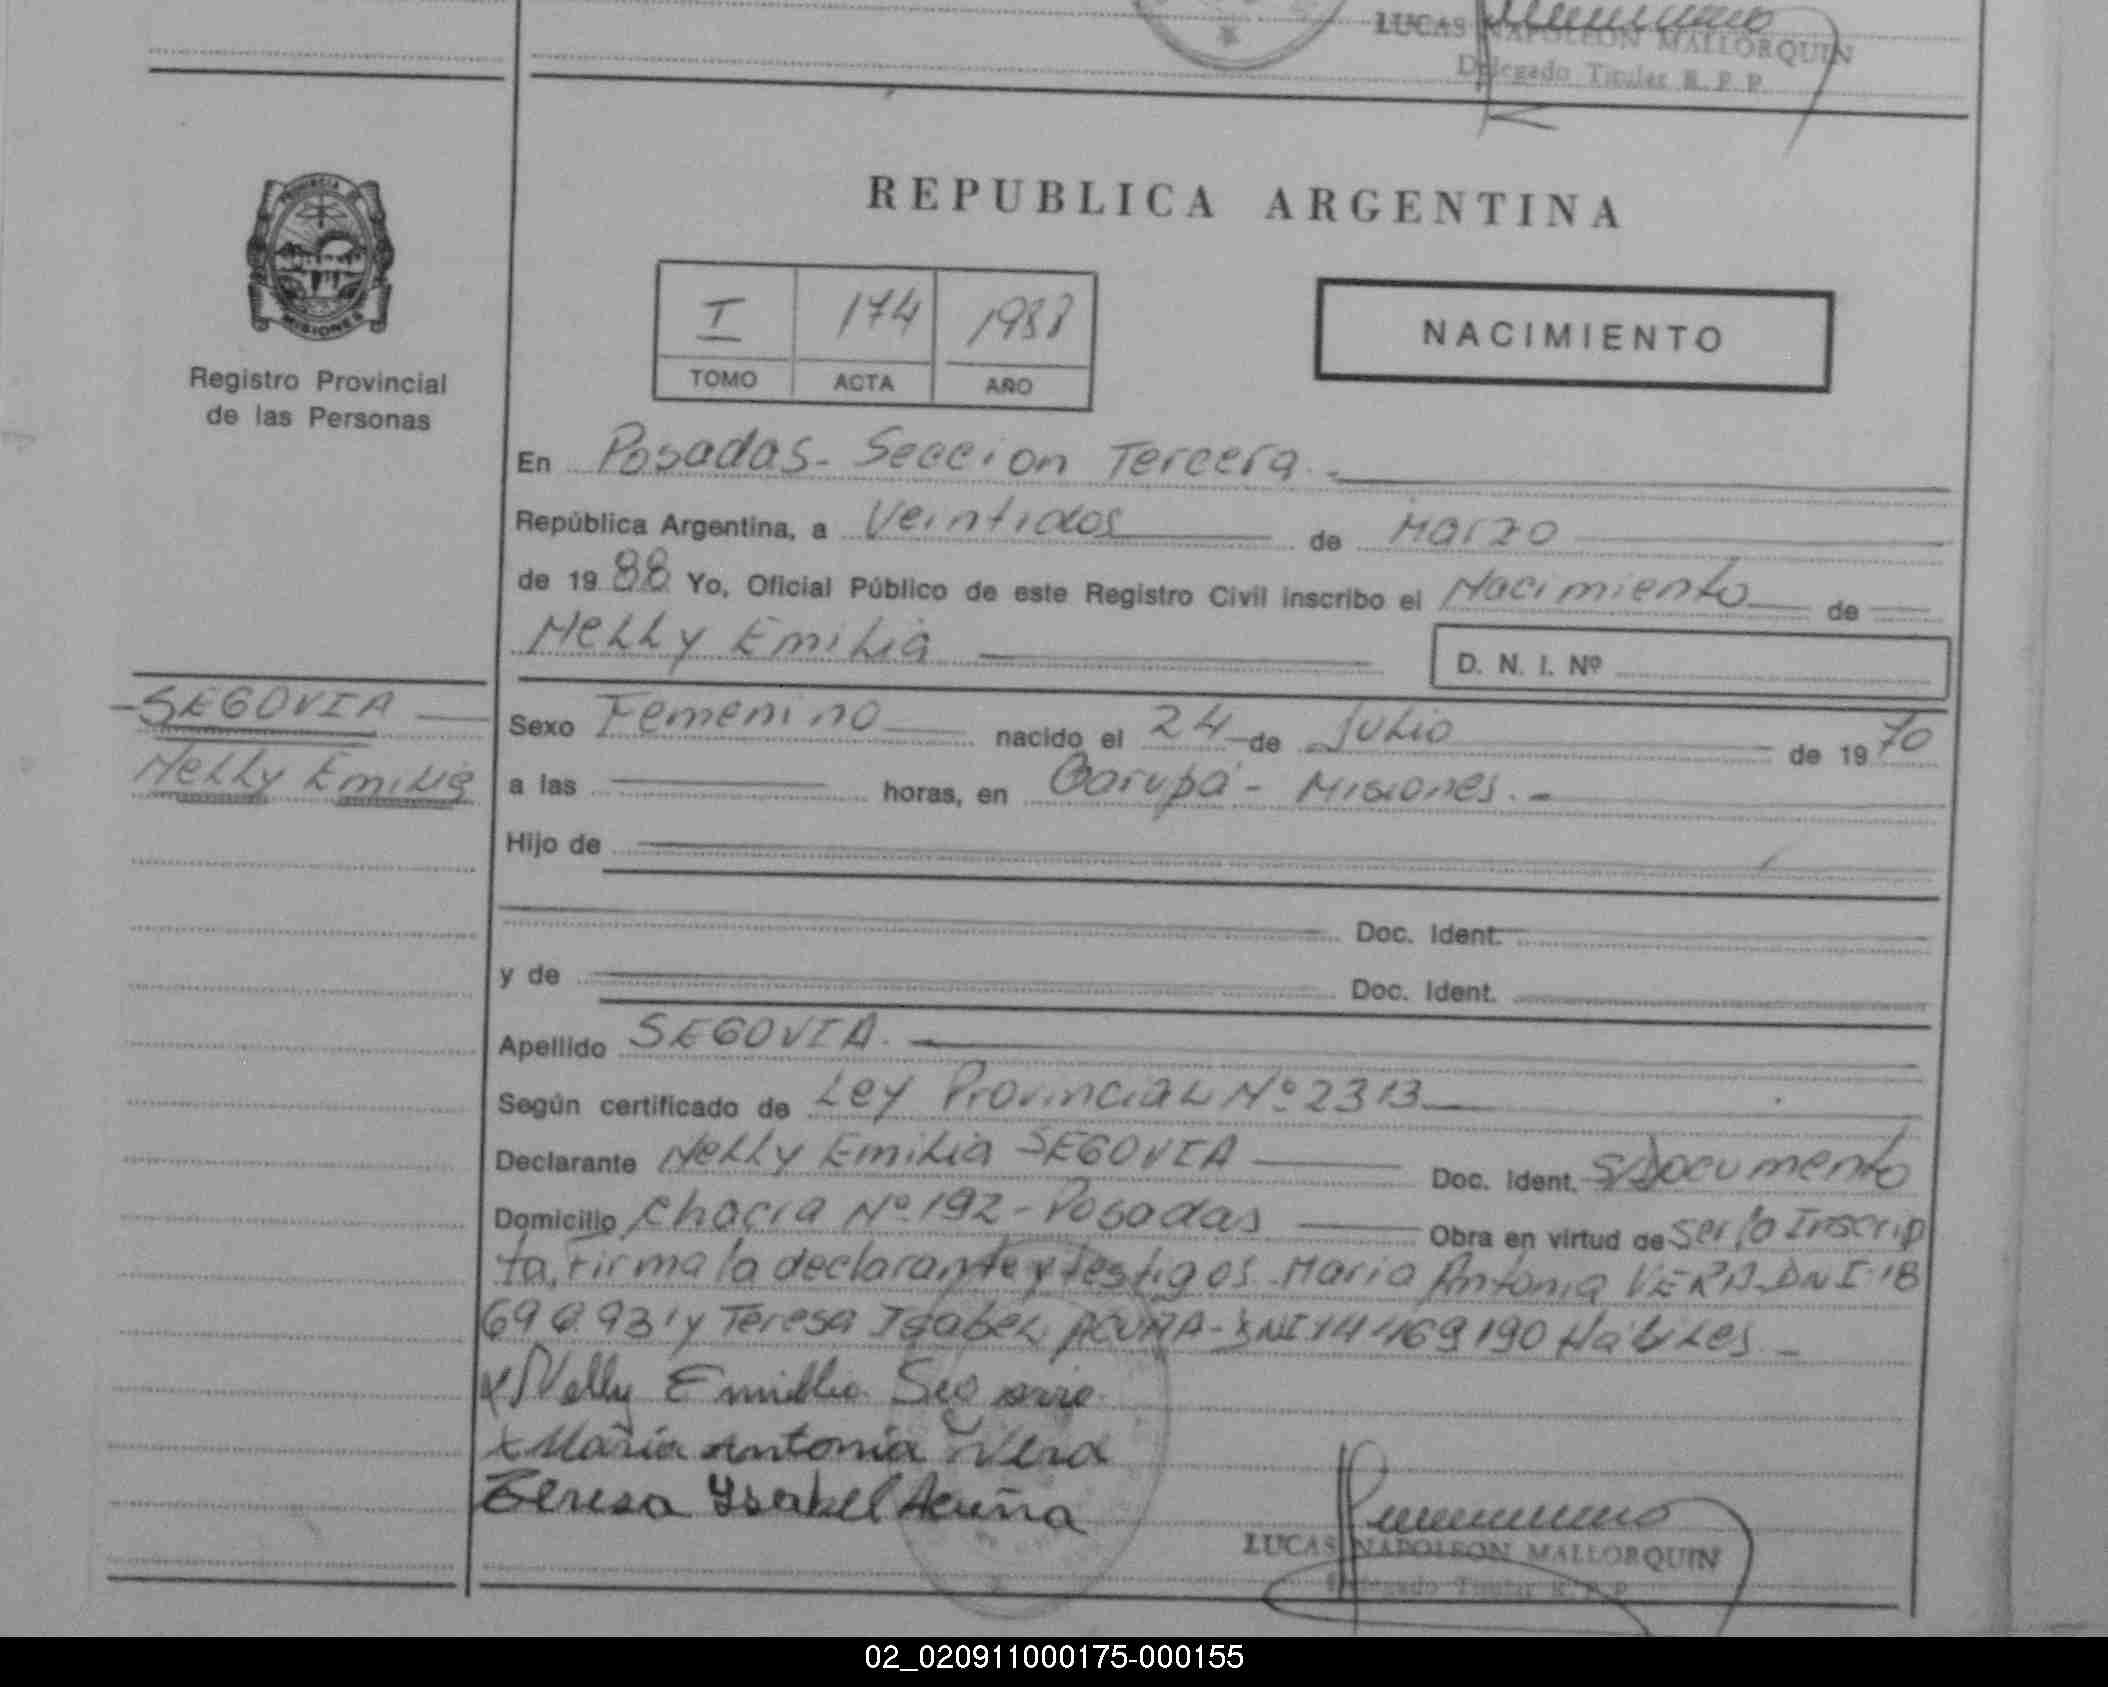 LUCAS NAPOLEON MALLORQUIN
Delegado Titular R. P. P.
PROVINCIA DE
MISIONES
Registro Provincial
de las Personas
REPUBLICA ARGENTINA
I 174 1988
TOMO ACTA AÑO
NACIMIENTO
En Posadas - Seccion Tercera.
República Argentina, a Veintidos de Marzo
de 19 88 Yo, Oficial Público de este Registro Civil inscribo el Nacimiento de
Nelly Emilia D. N. I. Nº
- SEGOVIA
Nelly Emilia
Sexo Femenino nacido el 24 de Julio de 19 70
a las horas, en Garupá - Misiones. -
Hijo de
Doc. Ident.
y de Doc. Ident.
Apellido SEGOVIA.
Según certificado de Ley Provincial Nº 2313
Declarante Nelly Emilia SEGOVIA Doc. Ident. S/Documento
Domicilio Chacra Nº 192 - Posadas Obra en virtud de ser la Inscrip
ta, Firma la declarante y testigos Maria Antonia VERA DNI 18
y Teresa Isabel ACUÑA - DNI 14 469 190 Hábiles. -
x Nelly Emillia Segovia
x Maria Antonia Vera
Teresa Ysabel Acuña
LUCAS NAPOLEON MALLORQUIN
Delegado Titular R. P. P.
02_020911000175-000155